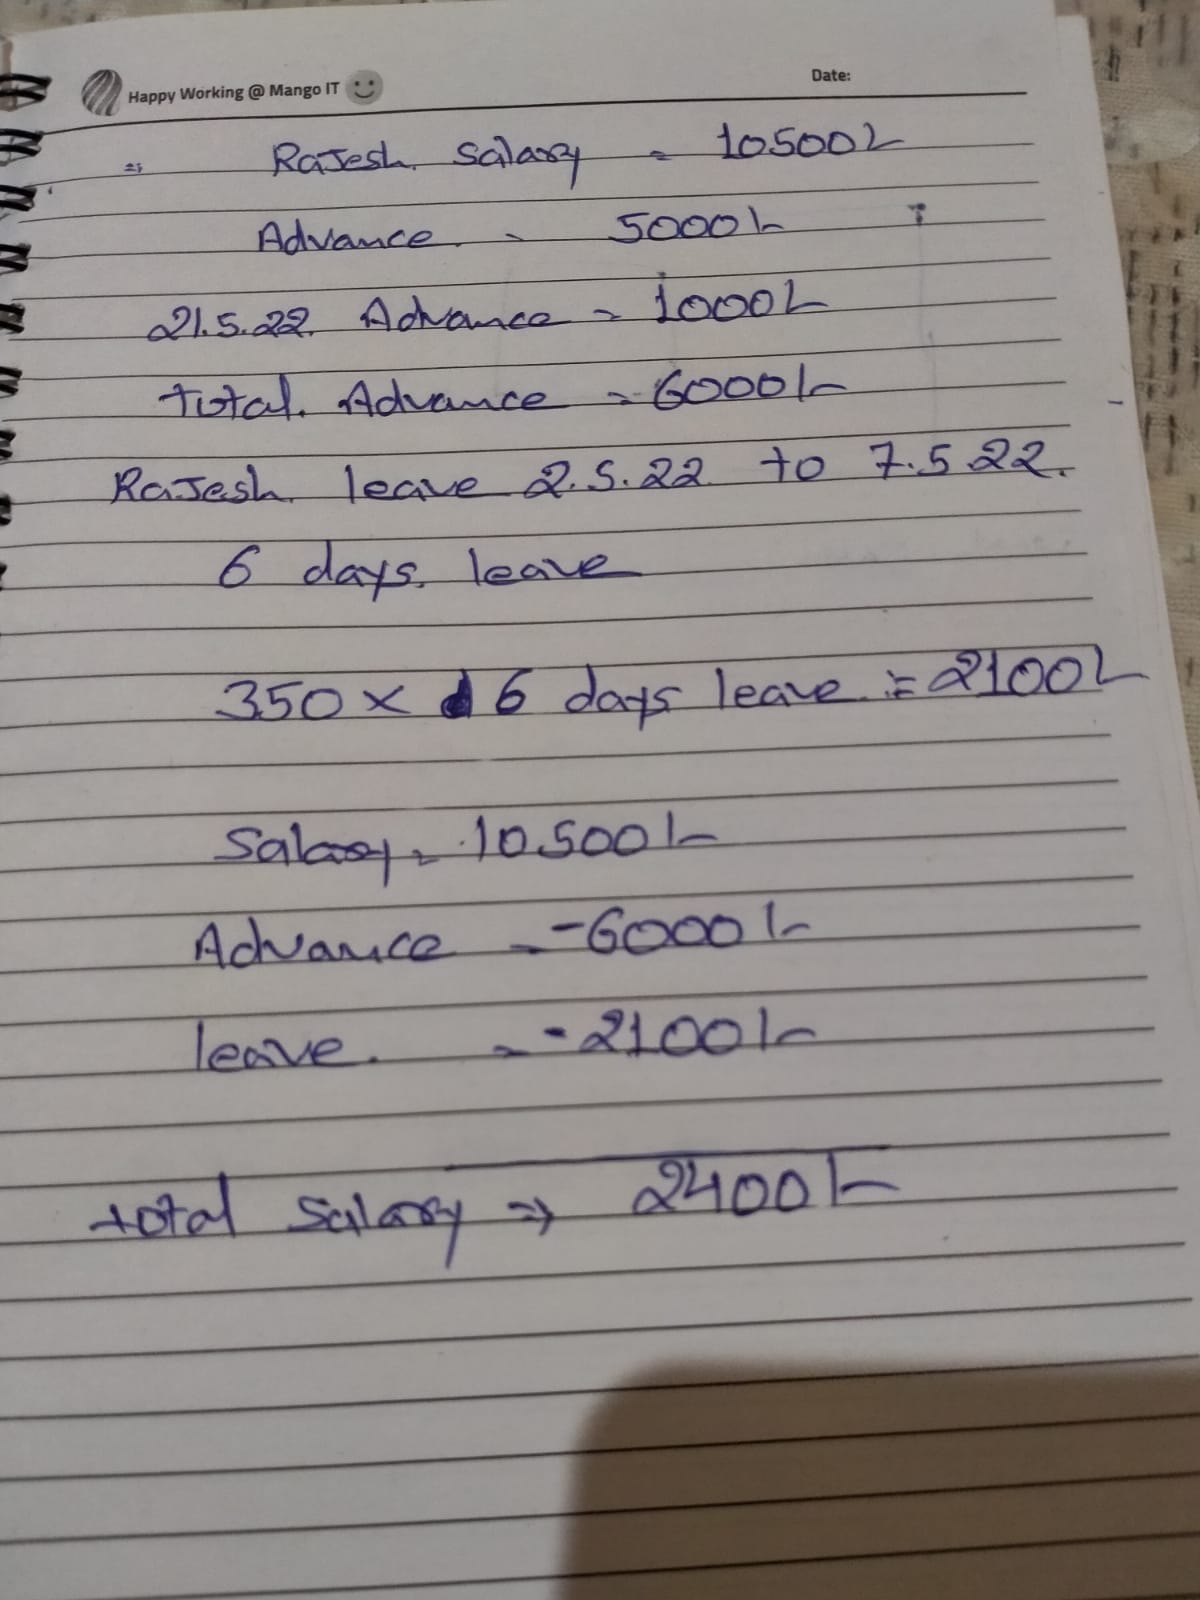 Happy Working @ Mango IT
Date:
Rajesh. Salary = 10500/-
Advance. - 5000/-
21.5.22. Advance = 1000/-
total. Advance = 6000/-
Rajesh. leave 2.5.22 to 7.5.22.
6 days. leave
350 x 6 days leave = 2100/-
Salary = 10,500/-
Advance = -6000/-
leave. = -2100/-
total Salary => 2400/-